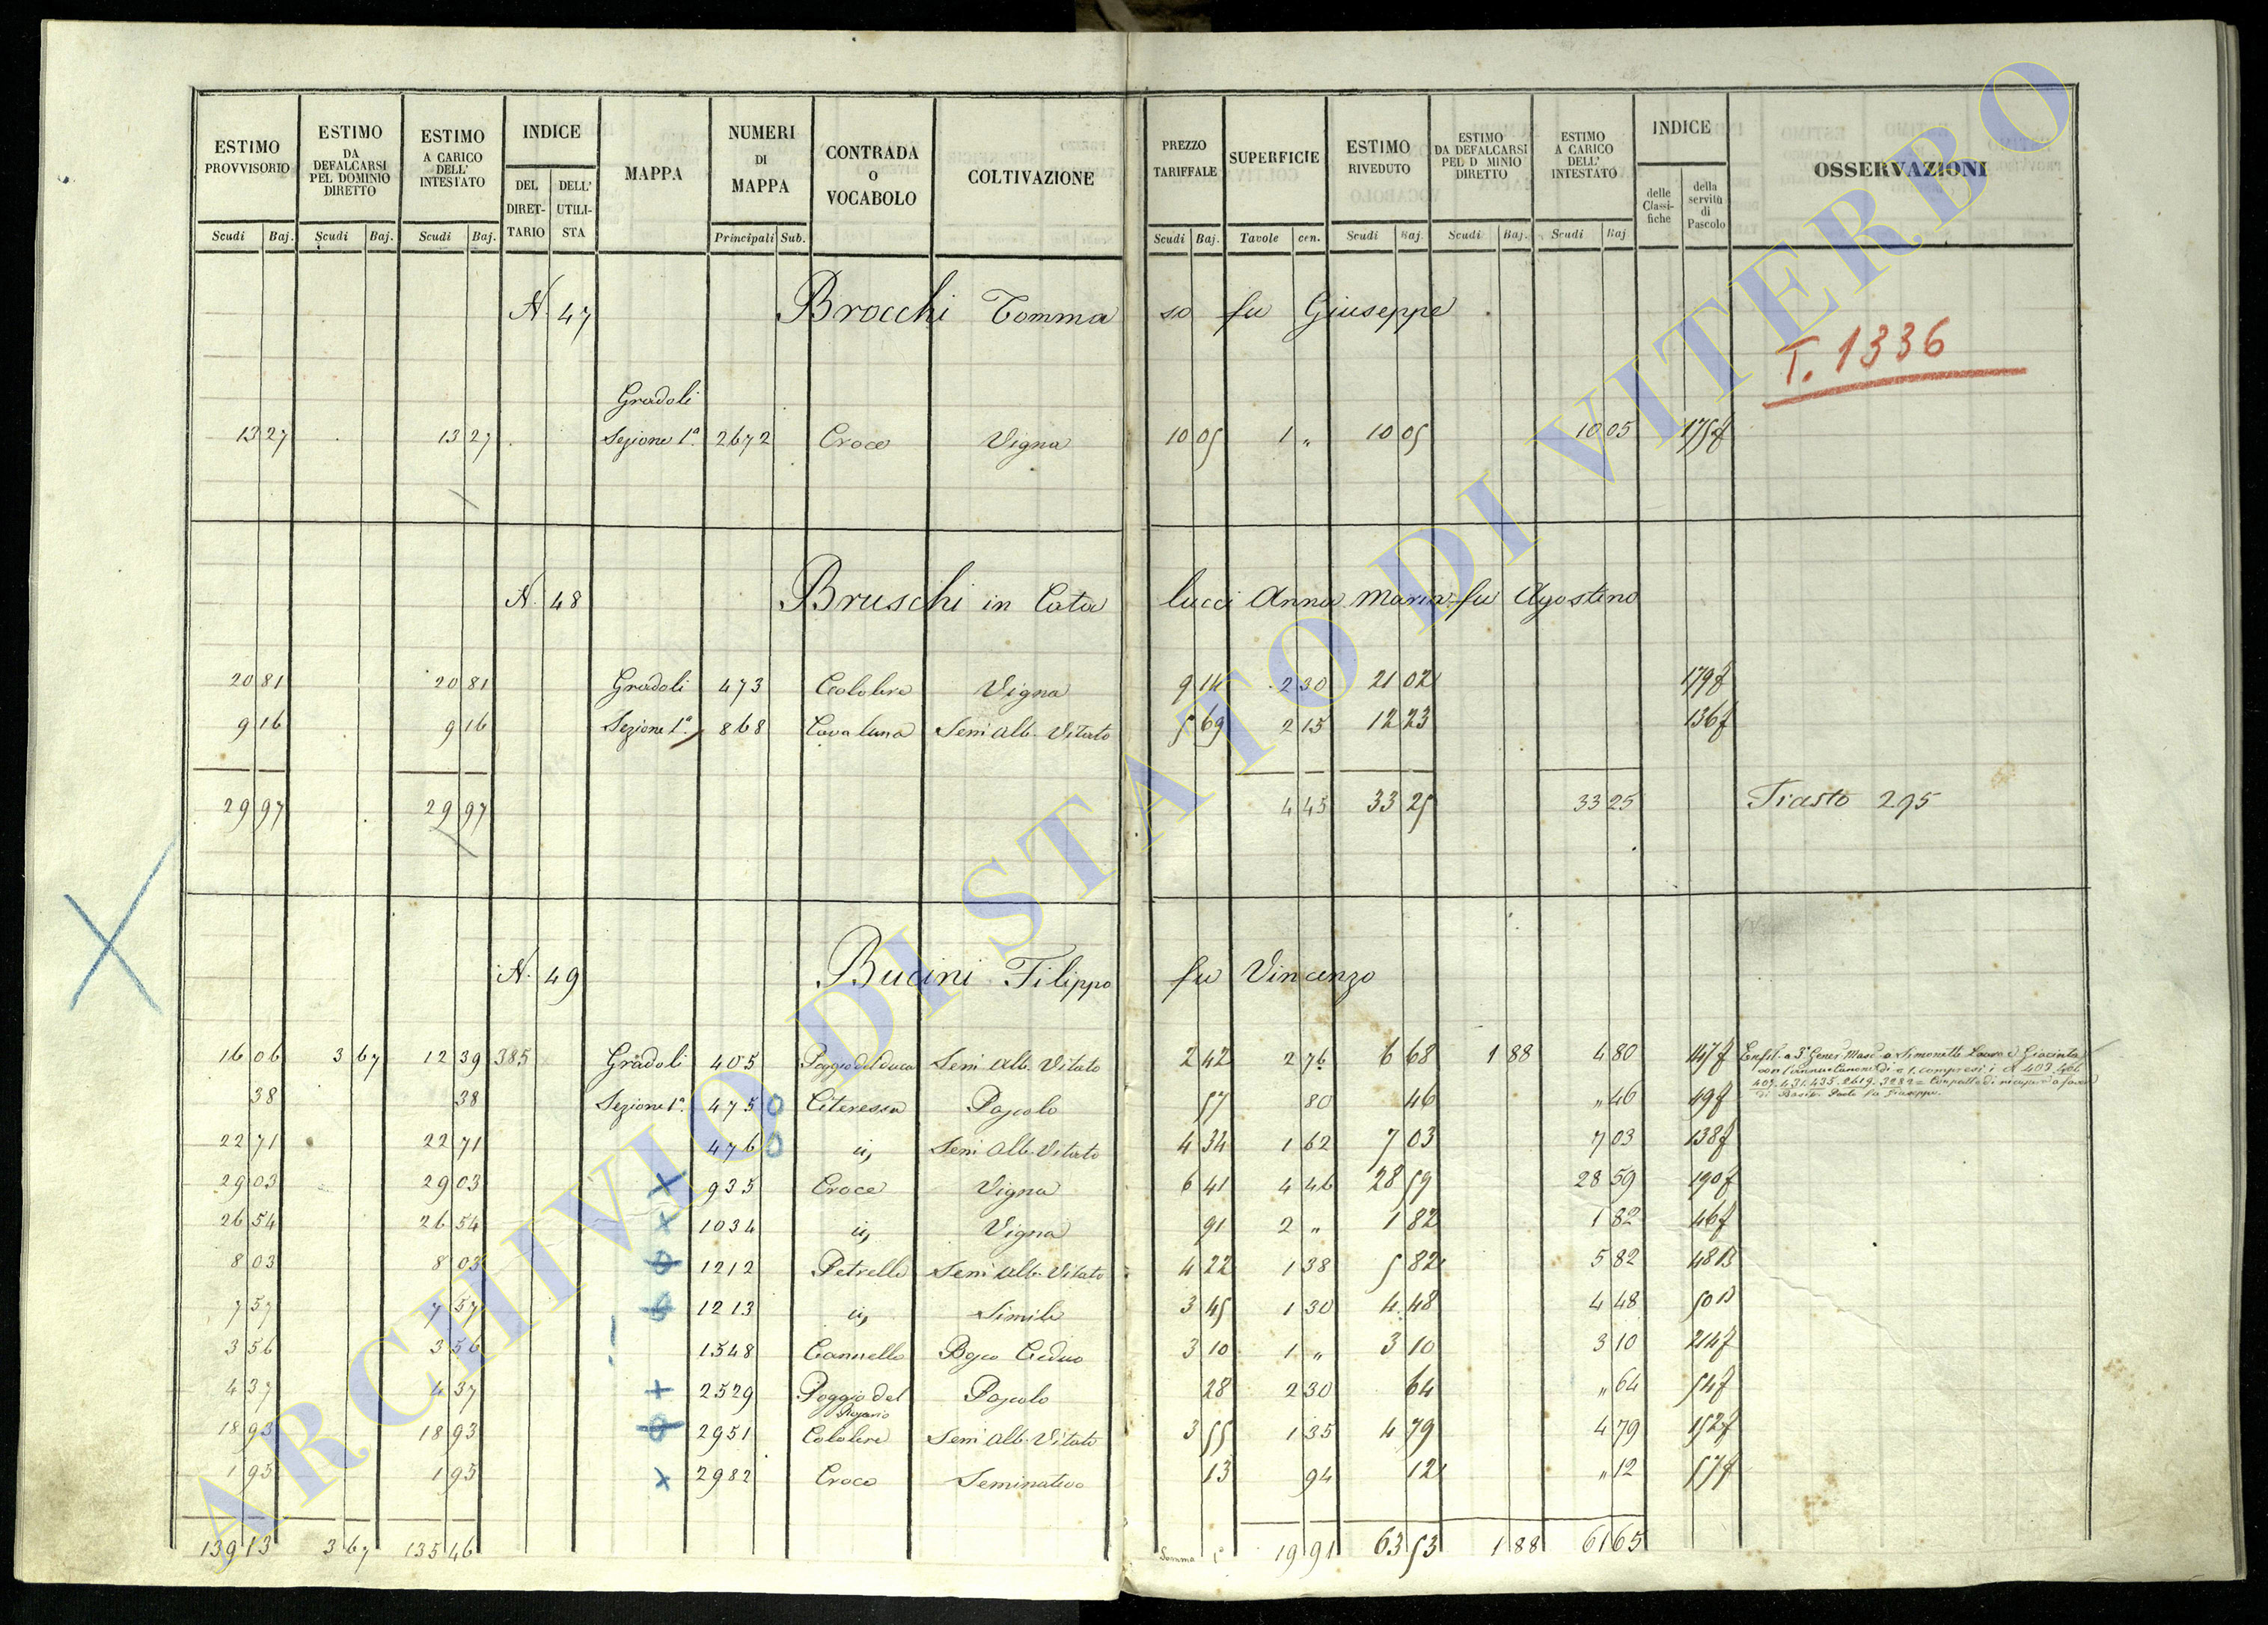 ESTIMO PROVVISORIO | ESTIMO DA DEFALCARSI PEL DOMINIO DIRETTO | ESTIMO A CARICO DELL' INTESTATO | INDICE | MAPPA | NUMERI DI MAPPA | CONTRADA O VOCABOLO | COLTIVAZIONE | PREZZO TARIFFALE | SUPERFICIE | ESTIMO RIVEDUTO | ESTIMO DA DEFALCARSI PEL D MINIO DIRETTO | ESTIMO A CARICO DELL' INTESTATO | INDICE | OSSERVAZIONI
DEL DIRETTARIO | DELL' UTILISTA | delle Classifiche | della servitù di Pascolo
Scudi | Baj. | Scudi | Baj. | Scudi | Baj. | Principali | Sub. | Scudi | Baj. | Tavole | cen. | Scudi | Baj. | Scudi | Baj. | Scudi | Baj
N. 47 Brocchi Tommaso fu Giuseppe
T. 1336
Gradoli
13 27 | 13 27 | Sezione 1a. | 2672 | Croce | Vigna | 10 05 | 1 „ | 10 05 | 10 05 | 175f
N. 48 Bruschi in Catalucci Anna Maria fu Agostino
20 81 | 20 81 | Gradoli | 473 | Vigna | 9 14 | 2 30 | 21 02 | 179f
9 16 | 9 16 | Sezione 1a. | 868 | Cavaluna | Semi Alb. Vitato | 5 69 | 2 15 | 12 23 | 136f
29 97 | 29 97 | 4 45 | 33 25 | 33 25 | Trasto 295
N. 49 Bucini Filippo fu Vincenzo
16 06 | 3 67 | 12 39 | 385 | Gradoli | 405 | Poggio del duca | Semi Alb. Vitato | 2 42 | 2 76 | 6 68 | 1 88 | 4 80 | 147f | a 3a Gener Masc. a Simonetti Laura e Giacinta
con l'annuo Canone di compresi i N. 403. 406
409. 431. 435. 2619. 3282
di Paolo fu Giuseppe.
38 | 38 | Sezione 1a. | 475 | Citeressa | Pascolo | 57 | 80 | 46 | „ 46 | 49f
22 71 | 22 71 | 476 | ii, | Semi Alb. Vitato | 4 34 | 1 62 | 7 03 | 7 03 | 138f
29 03 | 29 03 | 935 | Croce | Vigna | 6 41 | 4 46 | 28 59 | 28 59 | 190f
26 54 | 26 54 | 1034 | ii, | Vigna | 91 | 2 „ | 1 82 | 1 82 | 46f
8 03 | 8 03 | 1212 | Petrella | Semi Alb. Vitato | 4 22 | 1 38 | 5 82 | 5 82 | 48B
7 57 | 7 57 | 1213 | ii, | Simile | 3 45 | 1 30 | 4 48 | 4 48 | 50B
3 56 | 3 56 | 1548 | Cannello | Bosco Ceduo | 3 10 | 1 „ | 3 10 | 3 10 | 214f
4 37 | 4 37 | 2529 | Poggio del Rosario | Pascolo | 28 | 2 30 | 64 | „ 64 | 54f
18 93 | 18 93 | 2951 | Semi Alb. Vitato | 3 55 | 1 35 | 4 79 | 4 79 | 152f
1 95 | 1 95 | 2982 | Croce | Seminativo | 13 | 94 | 12 | „ 12 | 57f
139 13 | 3 67 | 135 46 | Somma | 19 91 | 63 53 | 1 88 | 61 65
ARCHIVIO DI STATO DI VITERBO